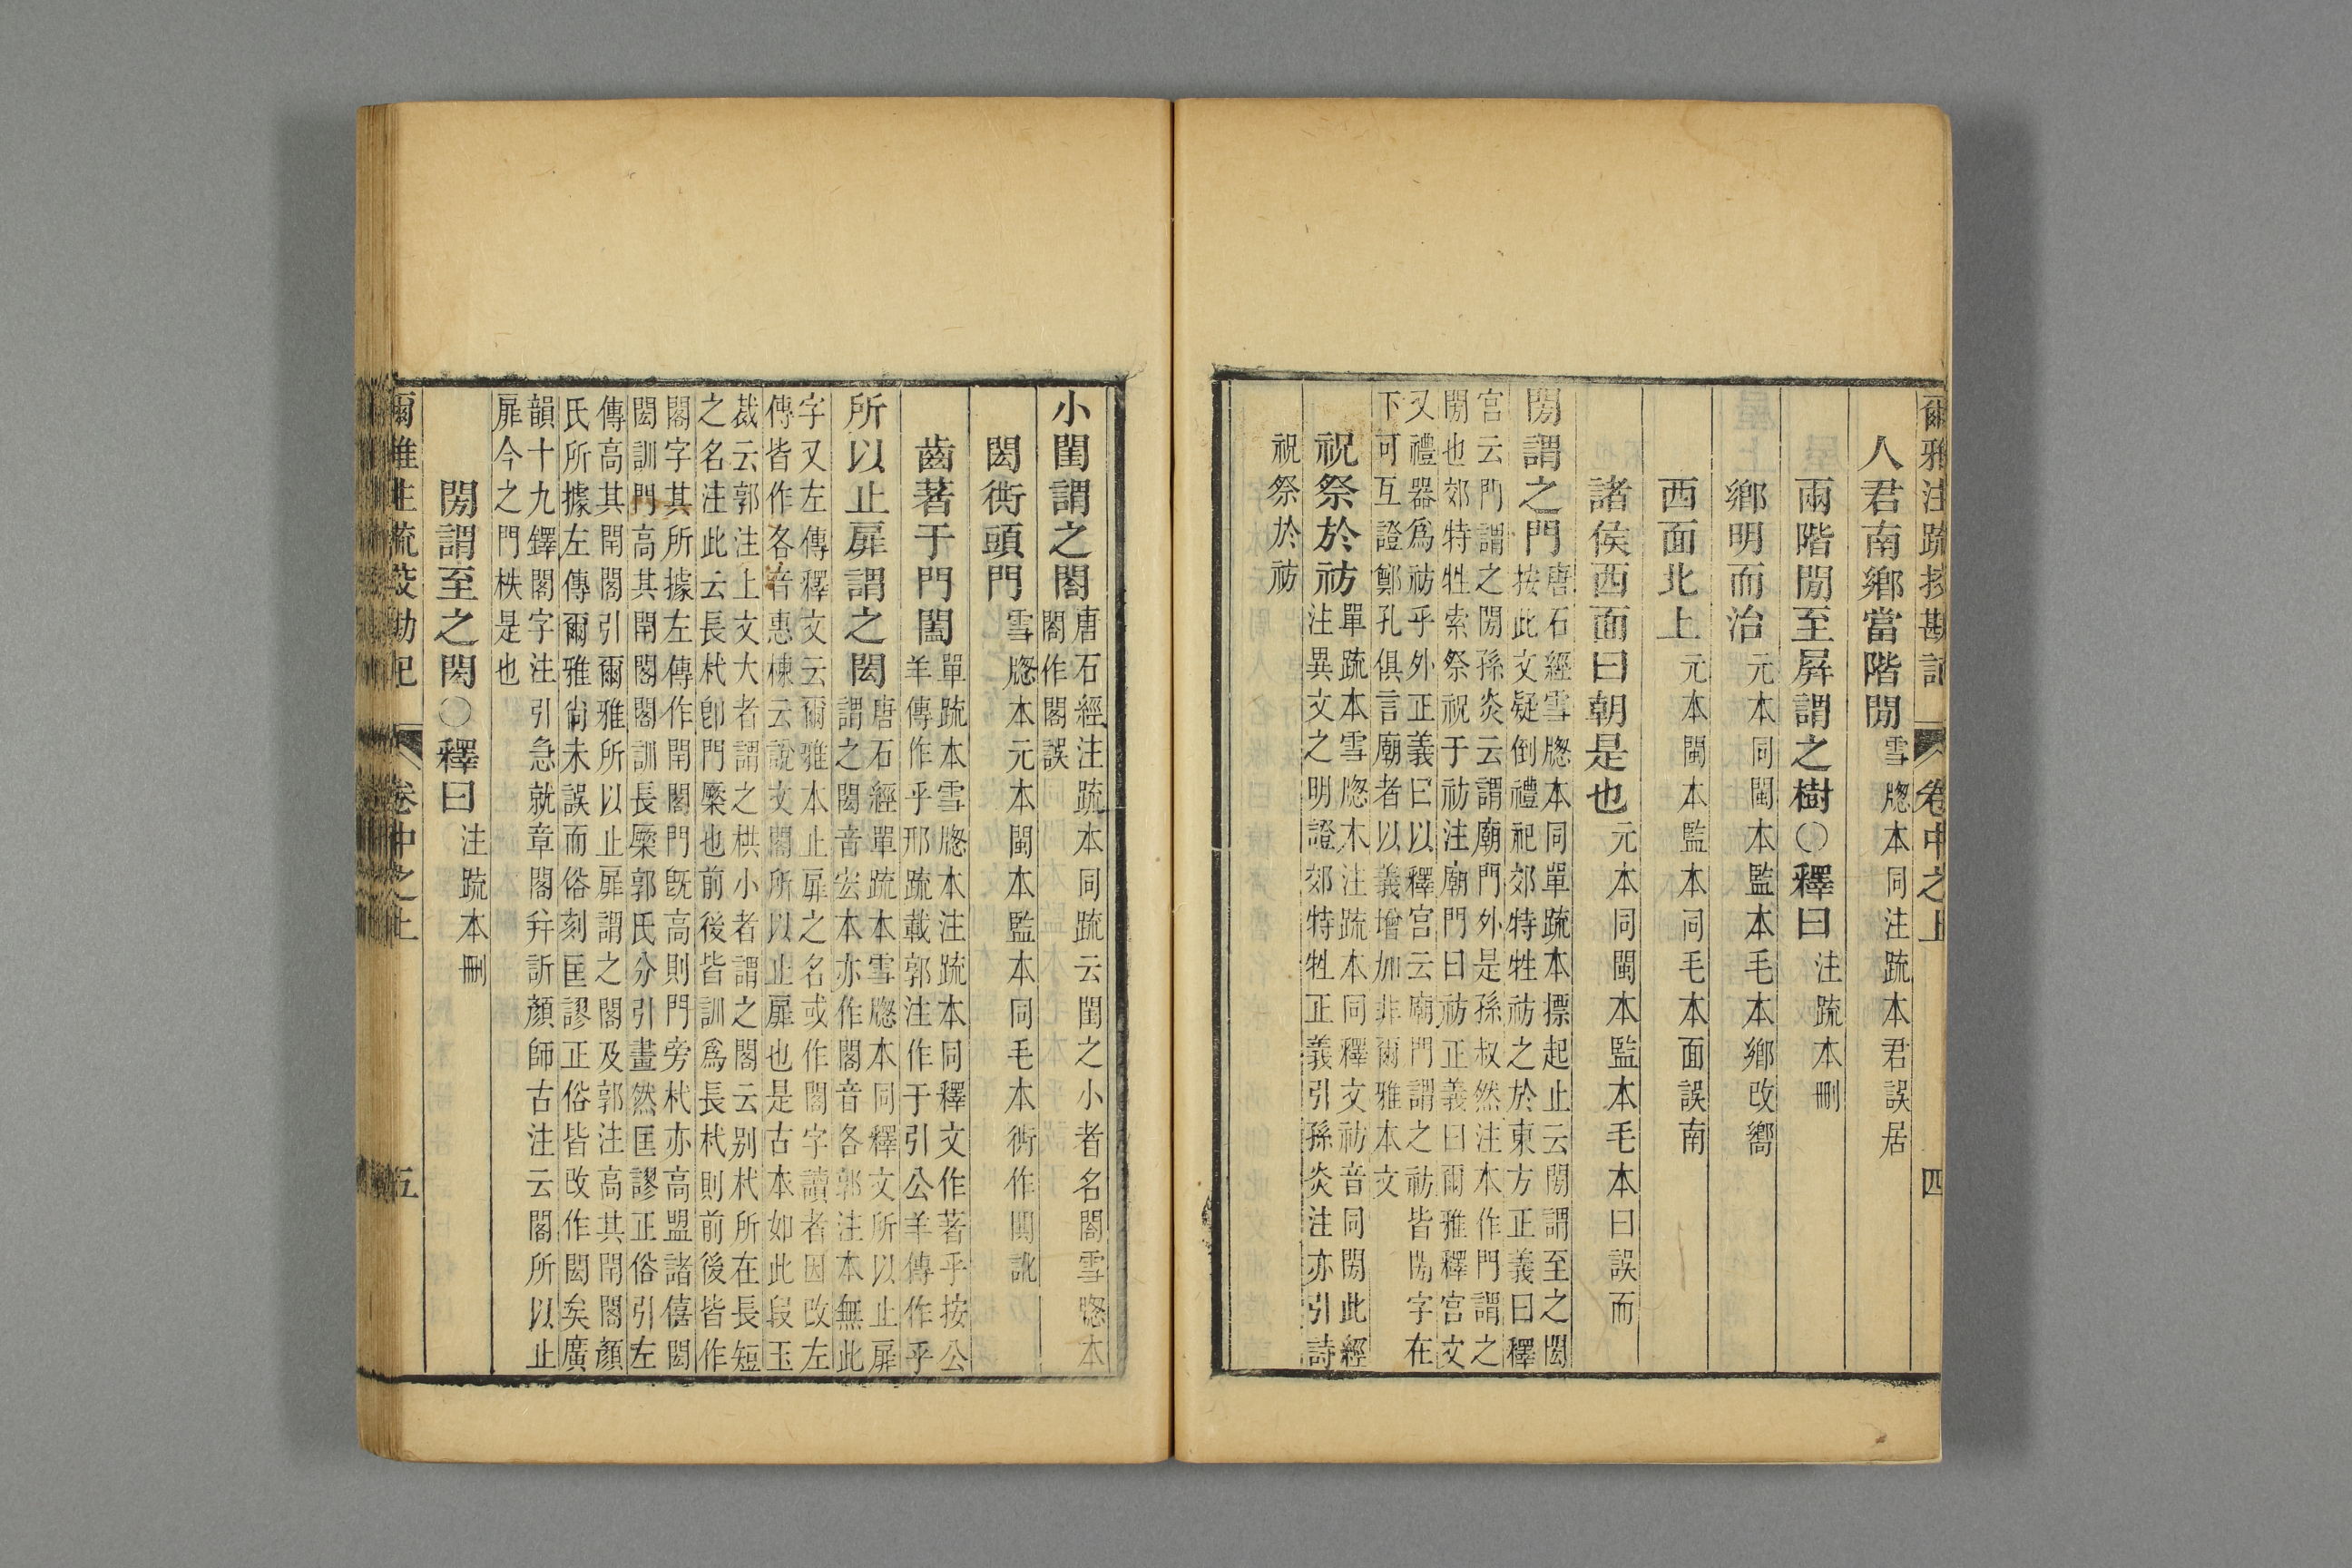 爾雅注疏挍勘記 卷中之上 四
人君南鄉當階閒 雪牕本同注疏本君誤居
兩階閒至屏謂之樹○釋曰 注疏本刪
鄉明而治 元本同閩本監本毛本鄉改嚮
西面北上 元本閩本監本同毛本面誤南
諸侯西面曰朝是也 元本同閩本監本毛本曰誤而
閍謂之門 唐石經雪牕本同單疏本摽起止云閍謂至之閎
按此文疑倒禮祀郊特牲祊之於東方正義曰釋
宮云門謂之閍孫炎云謂廟門外是孫叔然注本作門謂之
閍也郊特牲索祭祝于祊注廟門曰祊正義曰爾雅釋宮文
又禮器爲祊乎外正義曰以釋宮云廟門謂之祊皆閍字在
下可互證鄭孔俱言廟者以義增加非爾雅本文
祝祭於祊 單疏本雪牕本注疏本同釋文祊音同閍此經
注異文之明證郊特牲正義引孫炎注亦引詩
祝祭於祊
小閨謂之閤 唐石經注疏本同疏云閨之小者名閤雪牕本
閤作閣誤
閎衖頭門 雪牕本元本閩本監本同毛本衖作閧訛
齒著于門闔 單疏本雪牕本注疏本同釋文作著乎按公
羊傳作乎邢疏載郭注作于引公羊傳作乎
所以止扉謂之閎 唐石經單疏本雪牕本同釋文所以止扉
謂之閎音宏本亦作閣音各郭注本無此
字又左傳釋文云爾雅本止扉之名或作閣字讀者因改左
傳皆作各音惠棟云說文閣所以止扉也是古本如此段玉
裁云郭注上文大者謂之栱小者謂之閣云别杙所在長短
之名注此云長杙卽門橜也前後皆訓爲長杙則前後皆作
閣字其所據左傳作閈閣門旣高則門旁杙亦高盟諸僖閎
閎訓門高其閈閣閣訓長橜郭氏分引畫然匡謬正俗引左
傳高其閈閣引爾雅所以止扉謂之閣及郭注高其閈閣顏
氏所據左傳爾雅尙未誤而俗刻匡謬正俗皆改作閎矣廣
韻十九鐸閣字注引急就章閣并訢顏師古注云閣所以止
扉今之門柣是也
閍謂至之閎○釋曰 注疏本刪
爾雅注疏挍勘記 卷中之上 五